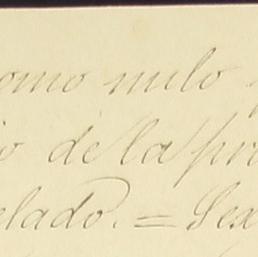 omo nulo
o de la pri
elado. = Sex